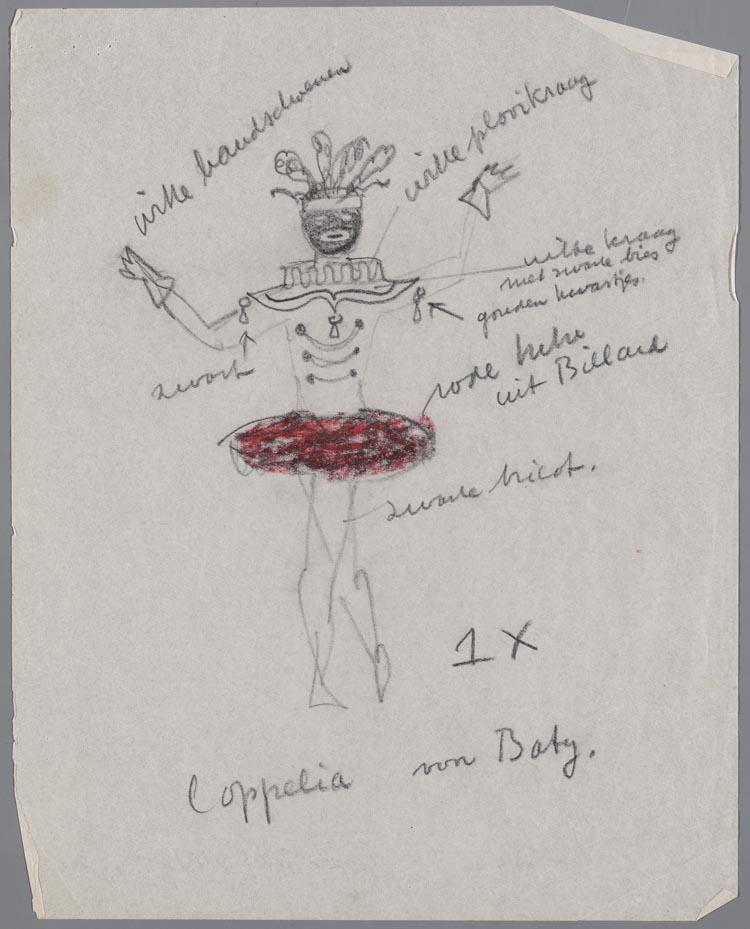 witte handschoenen
witte plooikraag
witte kraag
met zwarte bies
gouden kwastjes.
zwart
rode
uit Billard
zwarte tricot.
1X
Coppelia von Baty.